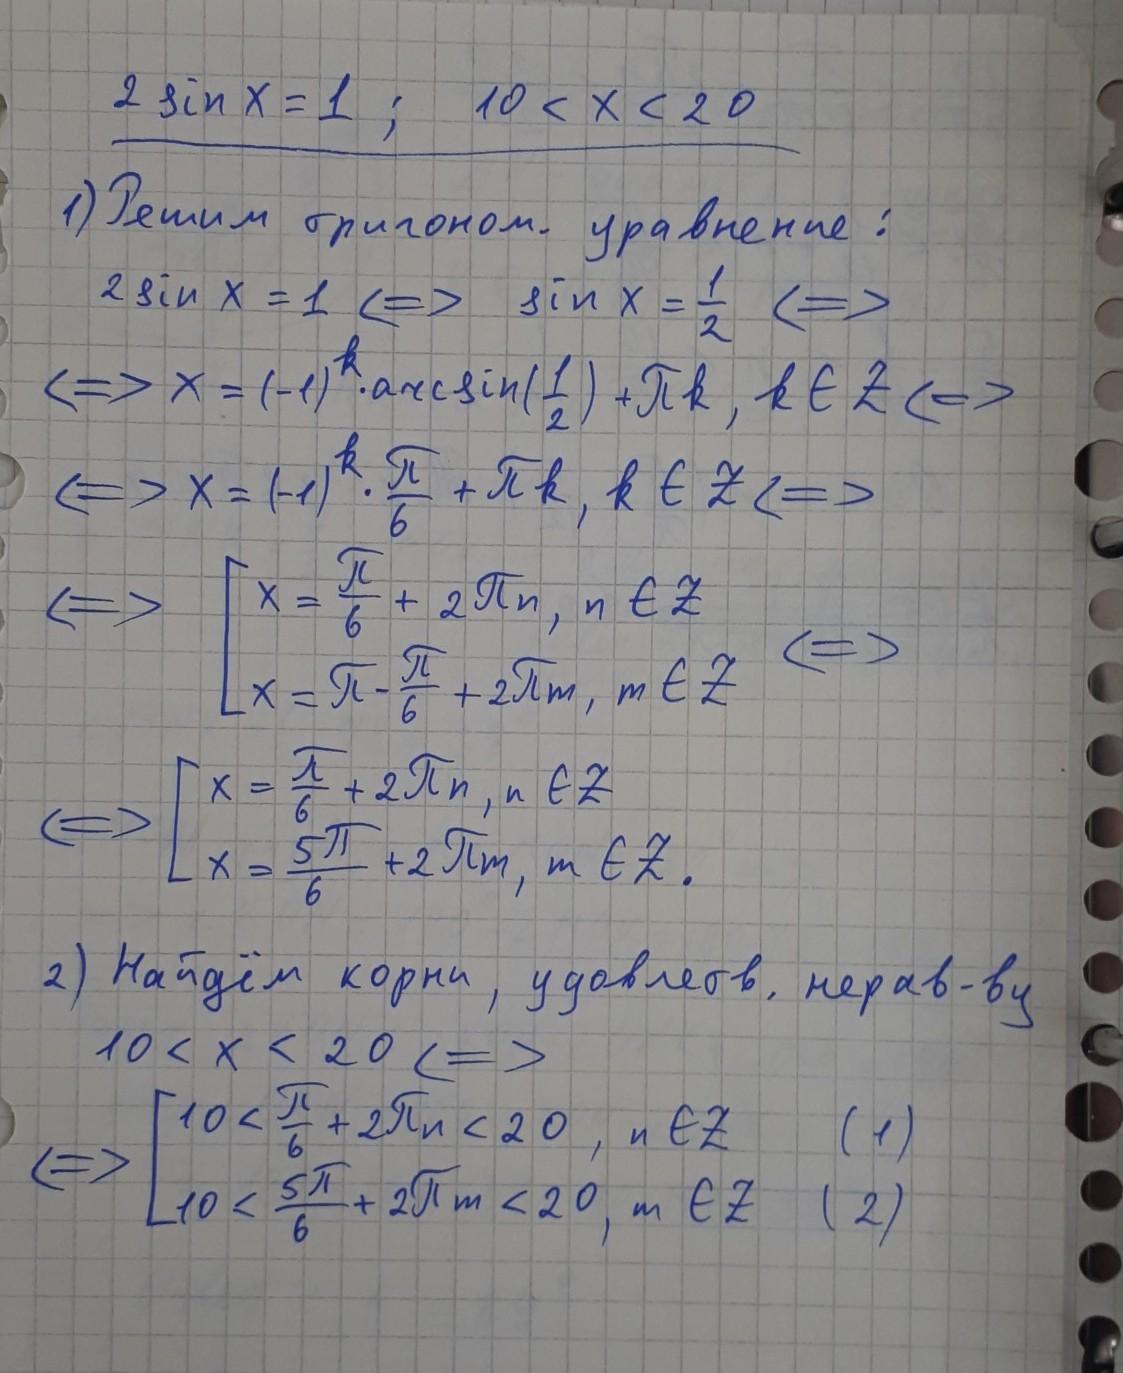 2 sin x = 1 ; 10 < x < 20
1) Решим тригоном. уравнение :
2 sin x = 1 <=> sin x = 1/2 <=>
<=> x = (-1)^k · arcsin(1/2) + πk, k ∈ Z <=>
<=> x = (-1)^k · π/6 + πk, k ∈ Z <=>
<=> [ x = π/6 + 2πn, n ∈ Z
x = π - π/6 + 2πm, m ∈ Z <=>
<=> [ x = π/6 + 2πn, n ∈ Z
x = 5π/6 + 2πm, m ∈ Z.
2) Найдём корни, удовлетв. нерав-ву
10 < x < 20 <=>
<=> [ 10 < π/6 + 2πn < 20, n ∈ Z (1)
10 < 5π/6 + 2πm < 20, m ∈ Z (2)